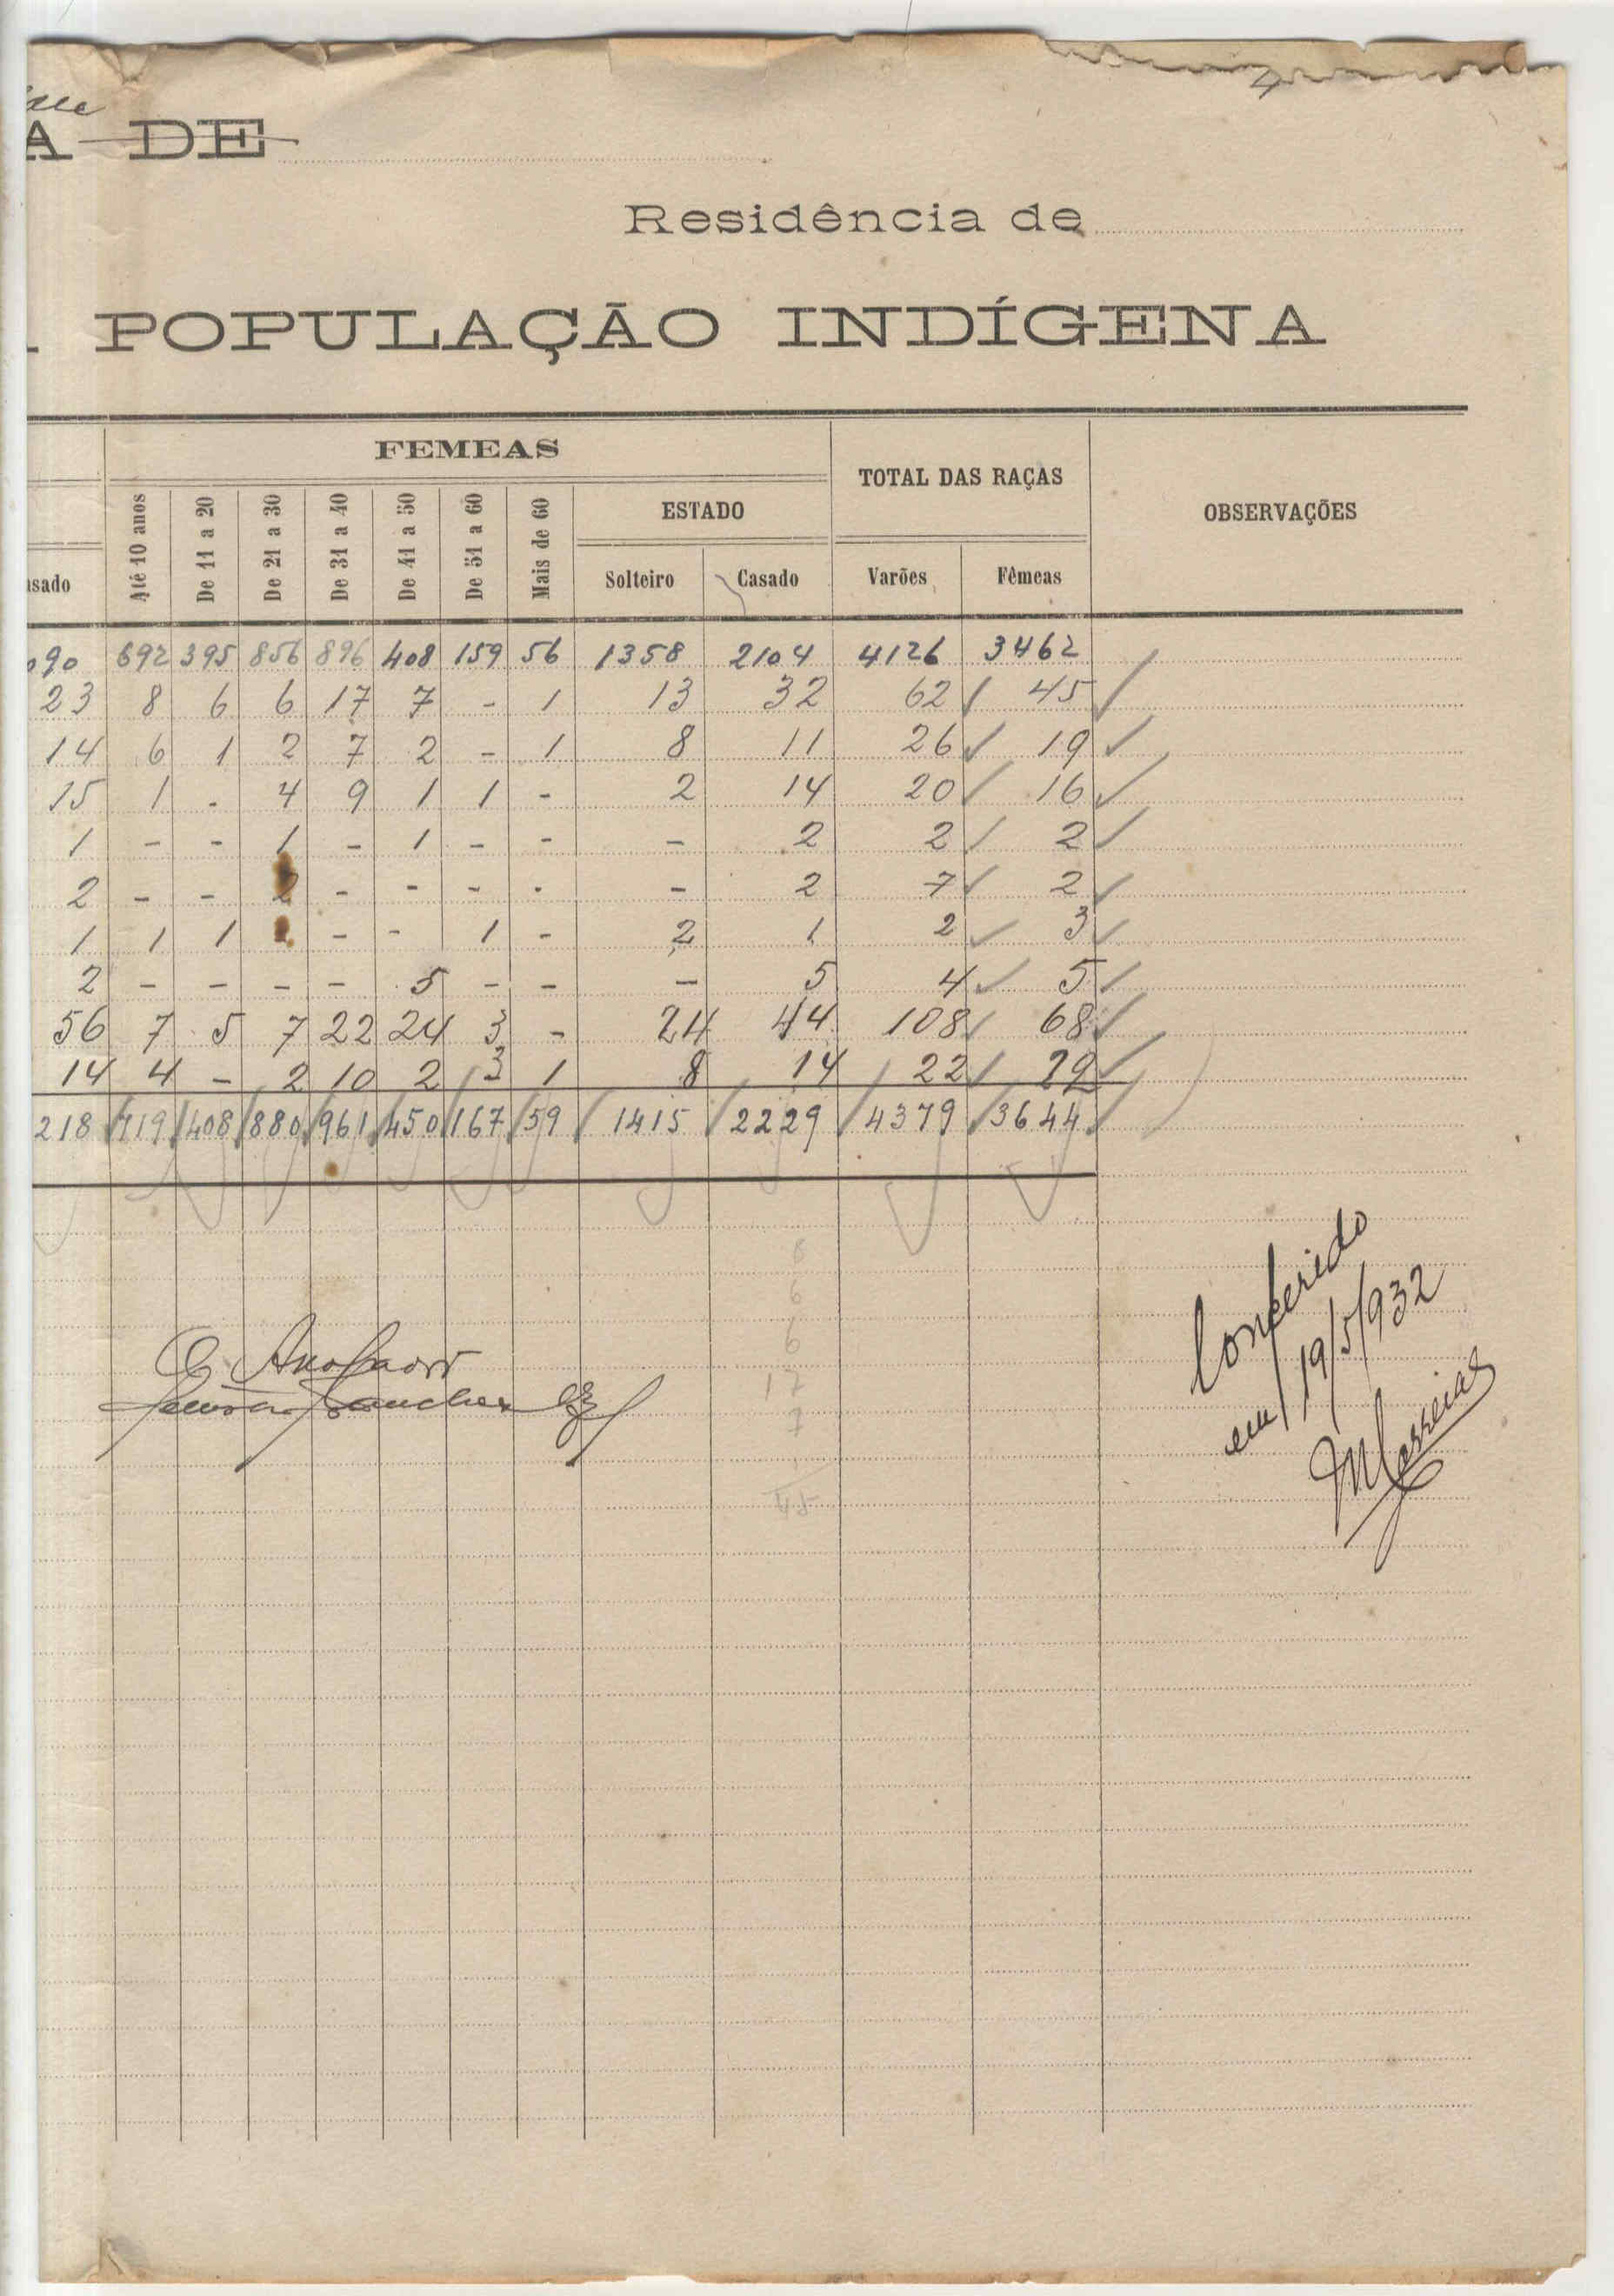 A DE
Residência de
POPULAÇÃO INDÍGENA
FEMEAS
TOTAL DAS RAÇAS
OBSERVAÇÕES
ESTADO
Até 10 anos De 11 a 20 De 21 a 30 De 31 a 40 De 41 a 50 De 51 a 60 Mais de 60 Solteiro Casado Varões Fêmeas
90 692 395 856 896 408 159 56 1358 2104 4126 3462
23 8 6 6 17 7 - 1 13 32 62 45
14 6 1 2 7 2 - 1 8 11 26 19
15 1 - 4 9 1 1 - 2 14 20 16
1 - - 1 - 1 - - - 2 2 2
2 - - 2 - - - - - 2 7 2
1 1 1 - - 1 - 2 1 2 3
2 - - - - 5 - - - 5 4 5
56 7 5 7 22 24 3 - 24 44 108 68
14 4 - 2 10 2 3 1 8 14 22 22
218 719 408 880 961 450 167 59 1415 2229 4379 3644
6
6
17
7
45
Conferido
em 19/5/932